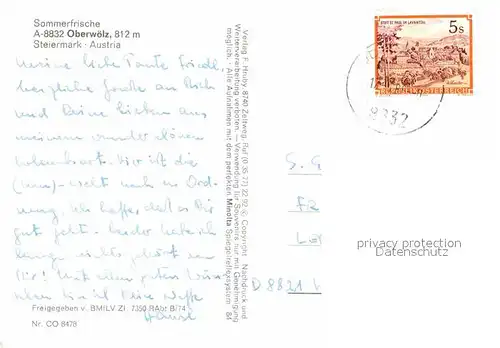 Sommerfrische
A-8832 Oberwölz, 812 m
Steiermark · Austria
Meine liebe Tante Friedl,
herzliche Grüße an Dich
und Deine lieben aus
meinem wunderschönen
ist die
(Um)-Welt noch in Ord-
nung. Ich hoffe, daß es Dir
gut geht. Leider habe ich
lange nichts gehört von
Dir! Mit allen guten Wün-
schen bin ich Deine Neffe
Freigegeben v. BMILV Zl. 7350 RAbt B/74
Nr. CO 8478
Verlag F. Hruby, 8740 Zeltweg, Ruf (0 35 77) 22 92 © Copyright · Nachdruck und
Weiterverarbeitung verboten. – Verwendung für Souvenirs nur mit Genehmigung
möglich. · Alle Aufnahmen mit dem perfekten Minolta Spiegelreflexsystem 84
STIFT ST. PAUL IM LAVANTTAL
5s
REPUBLIK ÖSTERREICH
8832
S. G
D 8821
privacy protection
Datenschutz